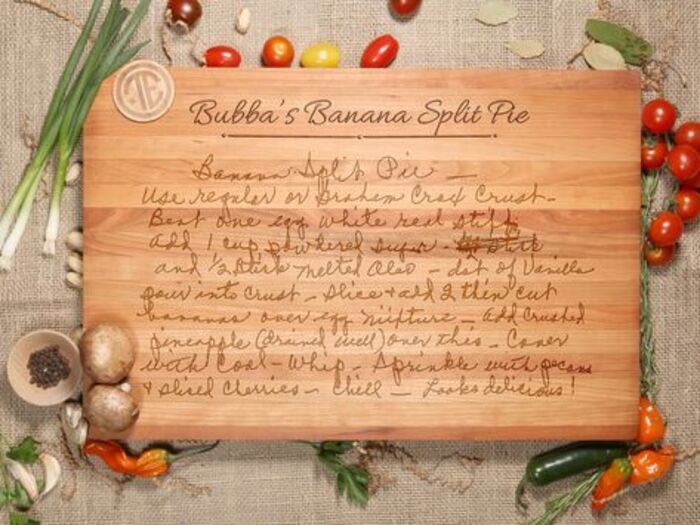 Bubba's Banana Split Pie
Banana Split Pie —
Use regular or Graham Crax Crust -
Beat one egg white real stiff
Add 1 cup powdered sugar -
and ½ stick melted oleo - dot of Vanilla
pour into crust - slice & add 2 thin cut
bananas over egg mixture - add crushed
pineapple (drained well) over this - Cover
with Cool-Whip - Sprinkle with pecans
& sliced cherries - Chill - Looks delicious!